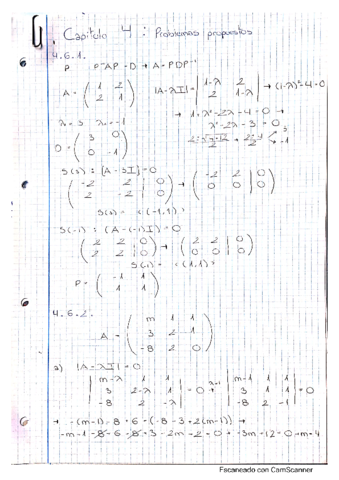 Capítulo 4: Problemas propuestos
4.6.1.
P P⁻¹AP = D → A = PDP⁻¹
A = ( 1 2 ; 2 1 ) |A-λI| = | 1-λ 2 ; 2 1-λ | → (1-λ)²-4=0
→ 1+λ²-2λ-4=0 →
λ²-2λ-3=0
λ=3 λ=-1
D = ( 3 0 ; 0 -1 )
S(3): (A-3I)=0
( -2 2 | 0 ; 2 -2 | 0 ) → ( -2 2 | 0 ; 0 0 | 0 )
S(-1): (A-(-1)I)=0
( 2 2 | 0 ; 2 2 | 0 ) → ( 2 2 | 0 ; 0 0 | 0 )
P = ( -1 1 ; 1 1 )
4.6.2.
A = ( m 1 1 ; 3 2 1 ; -8 2 0 )
a) |A-λI|=0
| m-λ 1 1 ; 3 2-λ 1 ; -8 2 -λ | = 0 → | m-1 1 1 ; 3 1 1 ; -8 2 -1 | = 0
→ -(m-1)-8+6-(-8-3+2(m-1)) →
Escaneado con CamScanner